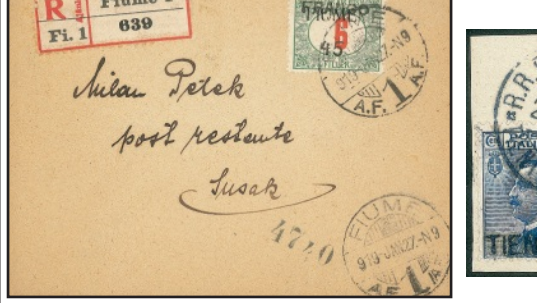 R Fiume 1
Fi. 1 639
FRANCO
6
45
FILLER
FIUME
919 JAN27-N9
A.F. 1 A.F.
Milan Petek
post restante
Susak
4740
FIUME
919-JAN27-N9
A.F. 1 A.
*R.R.
TIEN